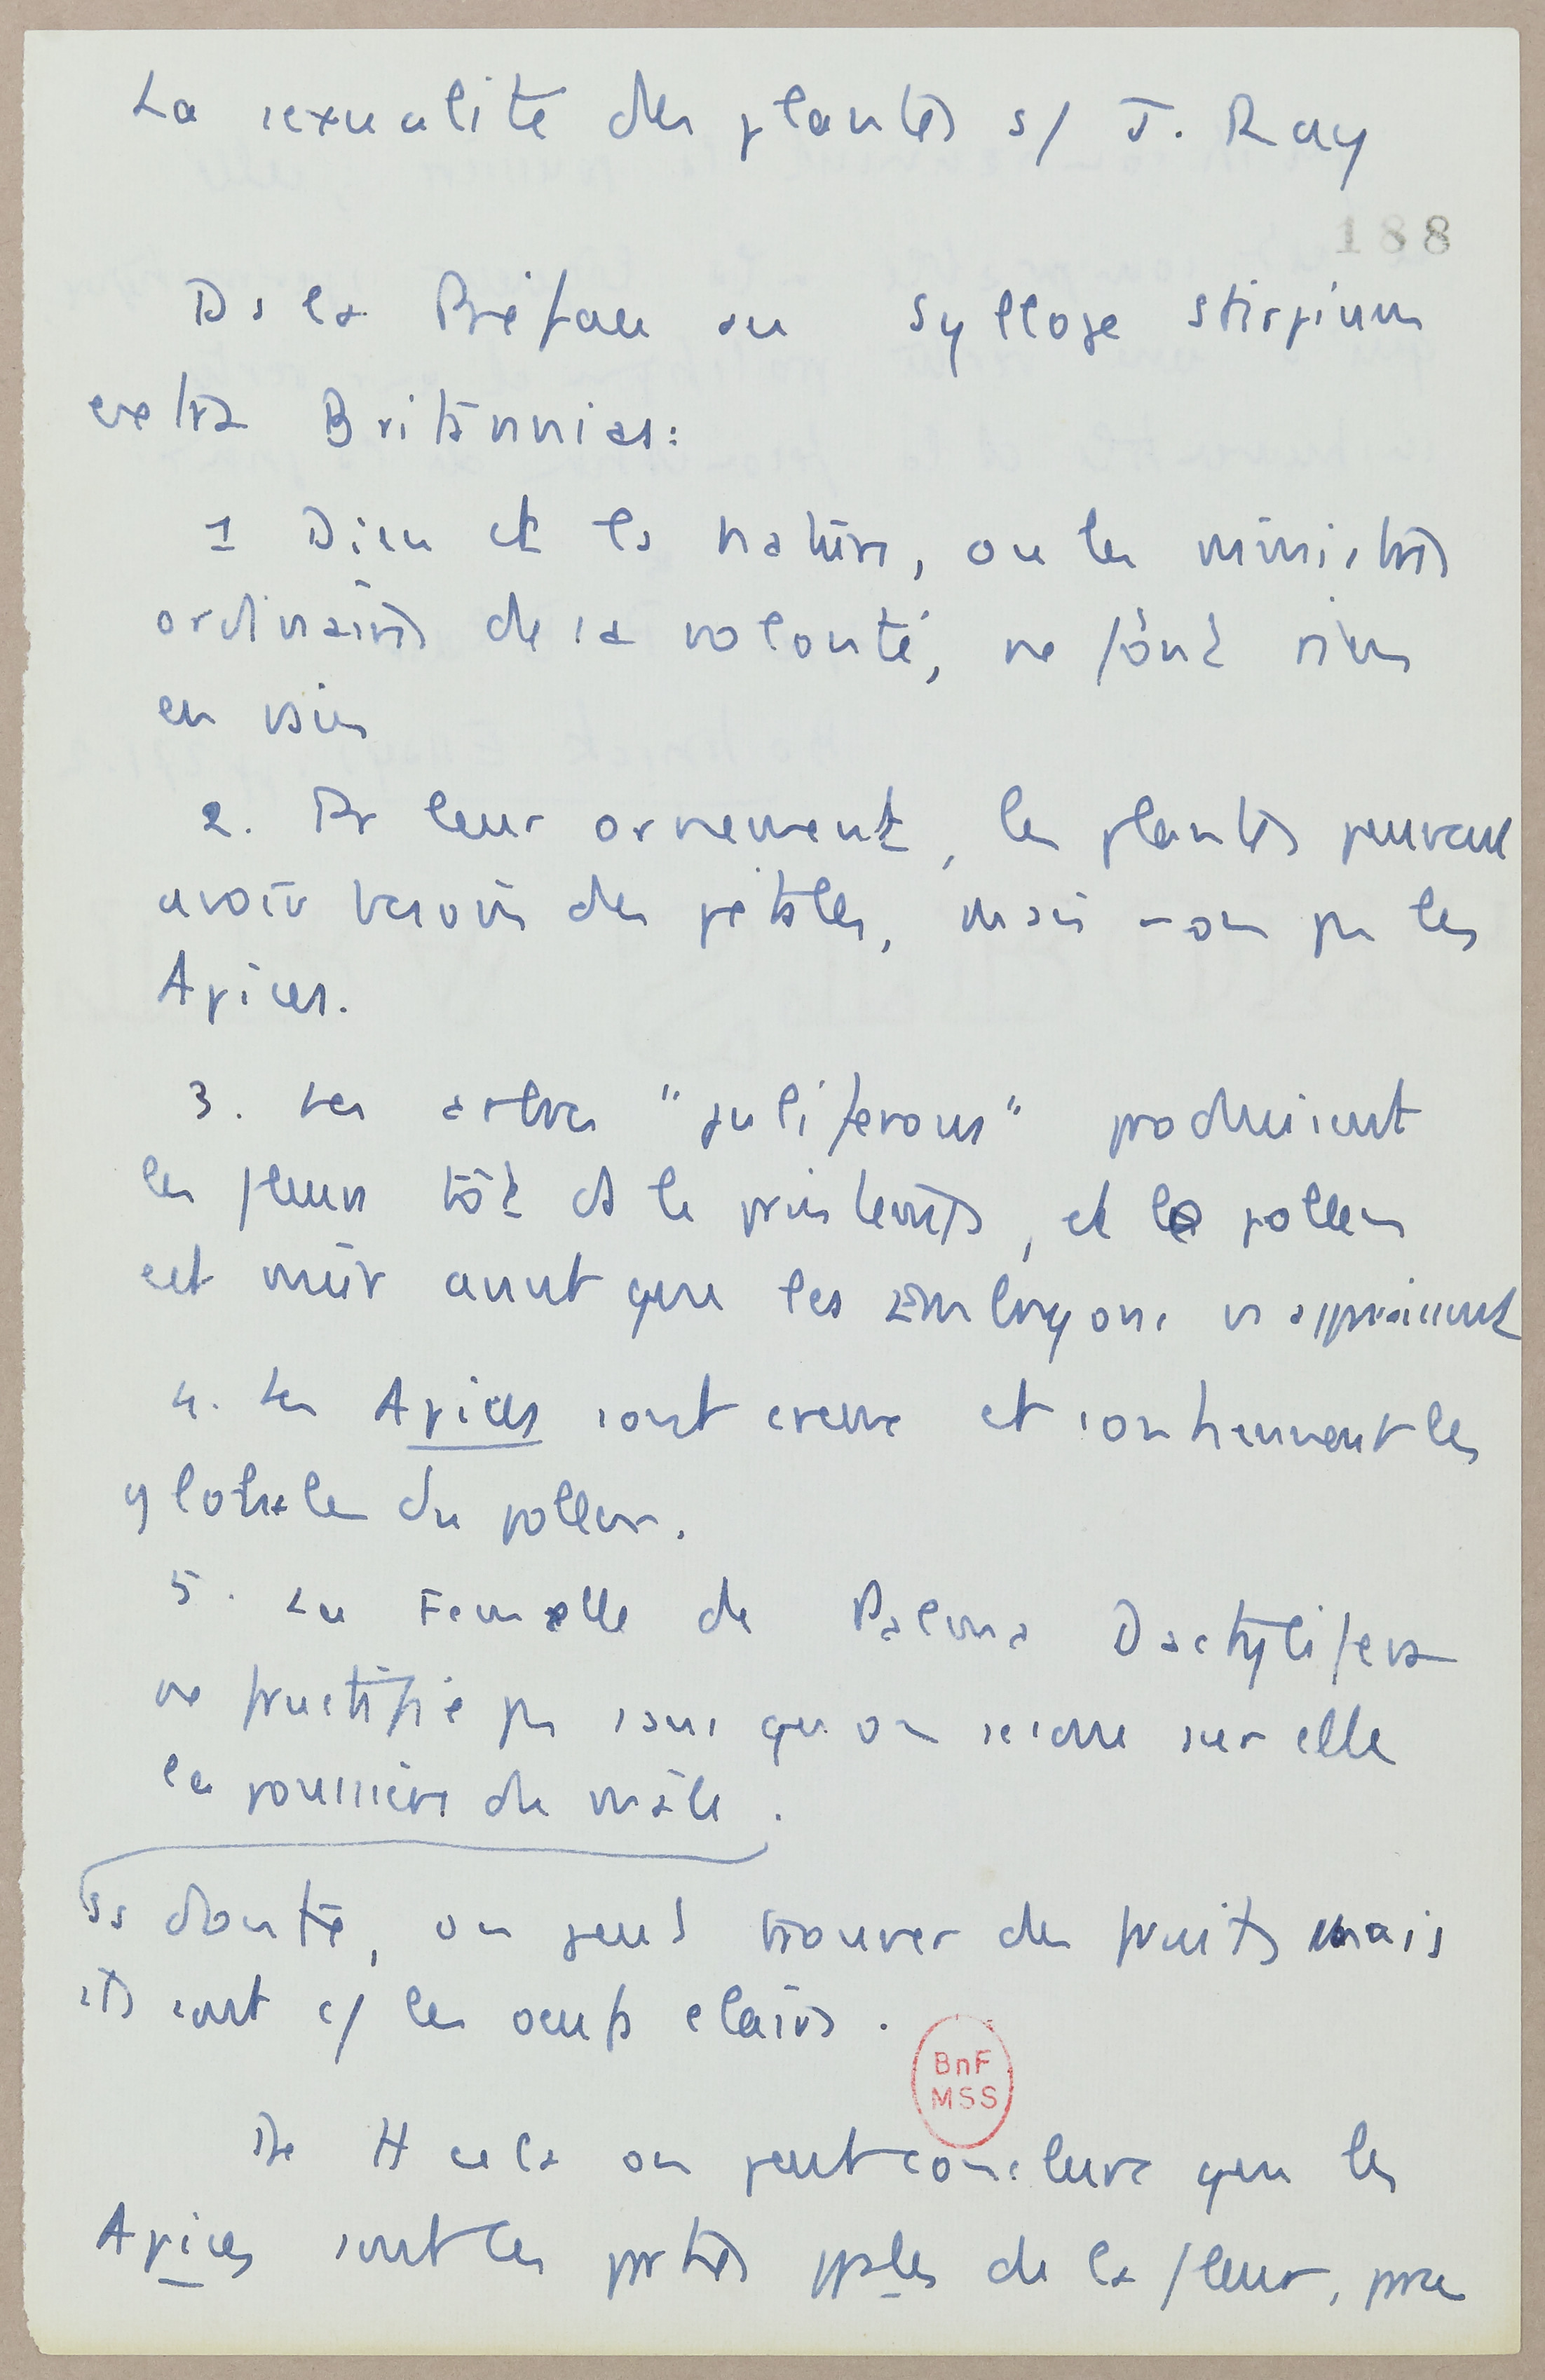 La sexualité des plantes s/ J. Ray
188
Ds la Préface au Sylloge stirpium
extra Britannias:
1 Dieu et la nature, ou les ministres
ordinaires de sa volonté, ne font rien
en vain
2. Pr leur ornement, les plantes peuvent
avoir besoin des pétales, mais non pas les
Apices.
3. Les arbres "juliferous" produisent
les fleurs tôt ds le printemps, et le pollen
est mûr avant que les embryons n'apparaissent
4. Les Apices sont creux et contiennent les
globules du pollen.
5. La Femelle de Palma Dactylifera
ne fructifie pas sans qu'on secoue sur elle
la poussière du mâle.
ss doute, on peut trouver des fruits mais
ils sont c/ les oeufs clairs.
BnF
MSS
De tt cela on peut conclure que les
Apices sont les prties ppales de la fleur, pce